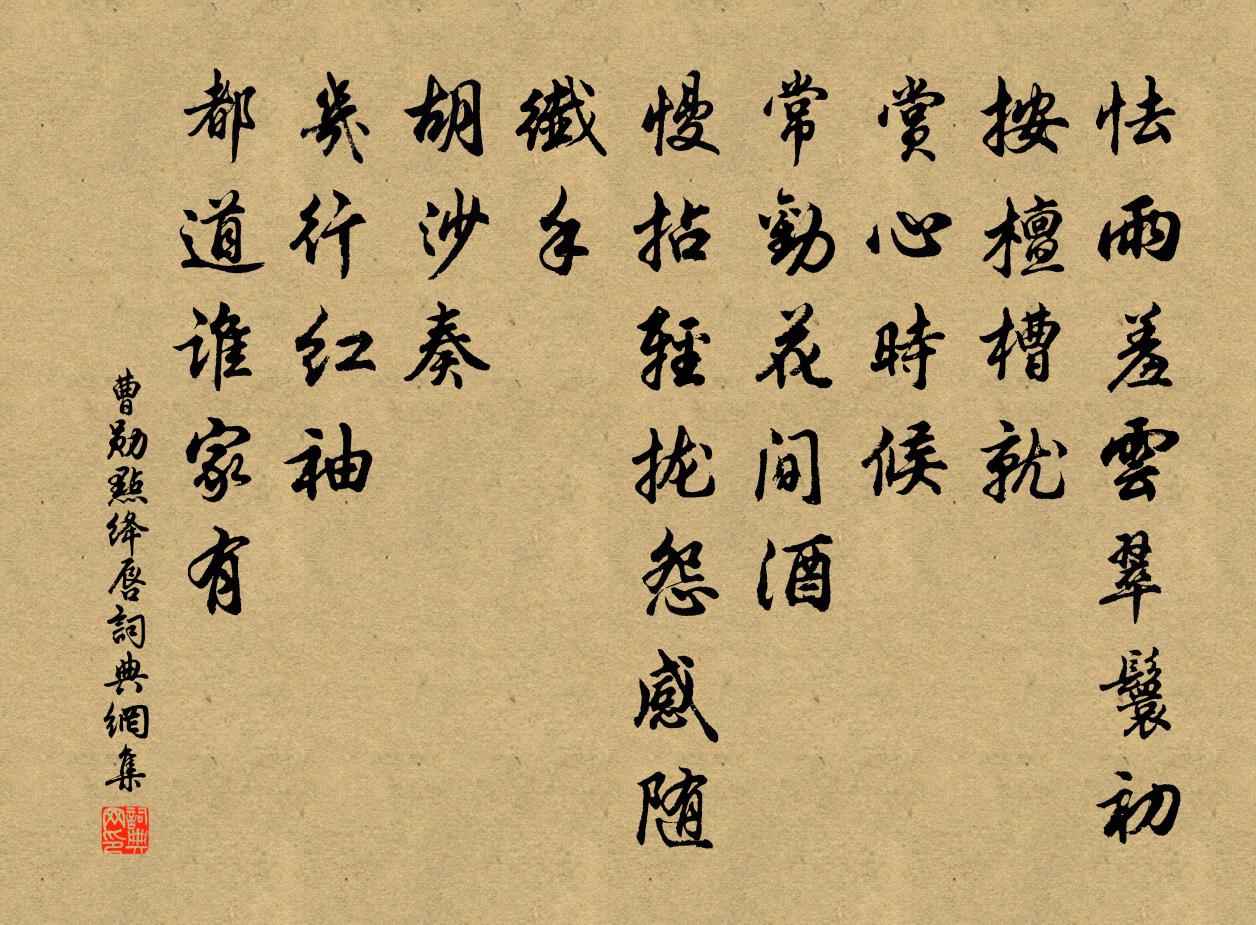 怯雨羞雲翠鬟初
按檀槽就
賞心時候
常勸花間酒
慢拈輕拢怨感随
纖手
胡沙奏
幾行红袖
都道誰家有
曹勛點绛唇詞典網集
詞典网印